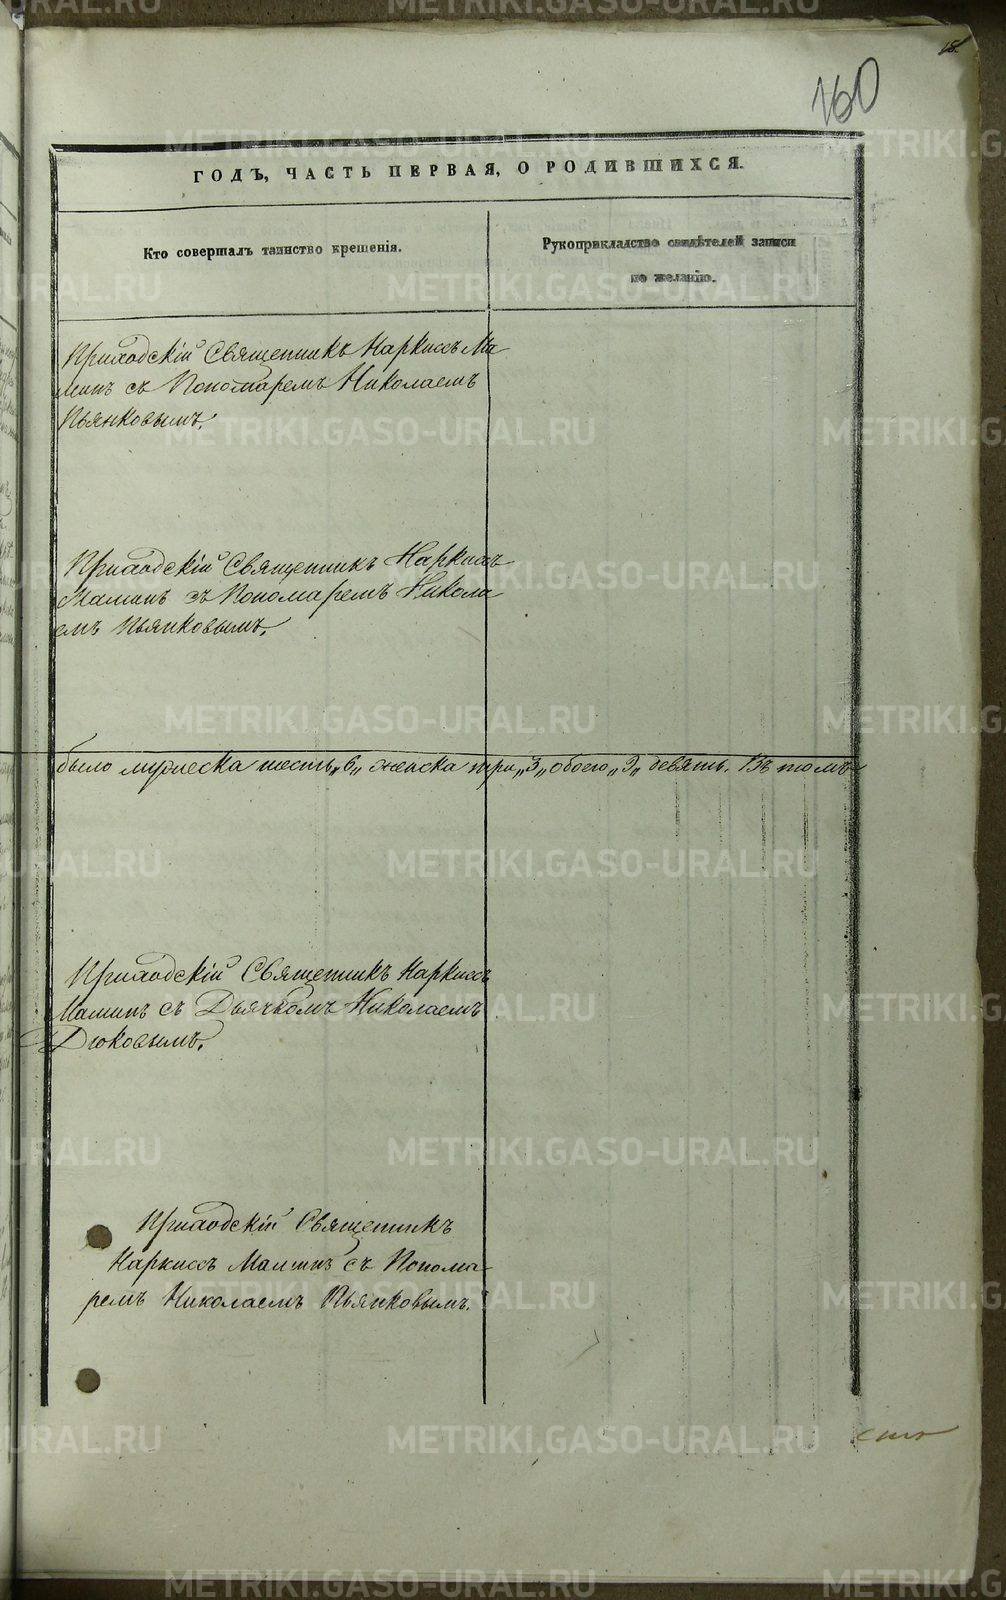 18.
160
ГОДЪ, ЧАСТЬ ПЕРВАЯ, О РОДИВШИХСЯ.
Кто совершалъ таинство крещенія.
Рукоприкладство свидѣтелей записи
по желанію.
Приходскій Священникъ Наркиссъ Ма-
минъ съ Пономаремъ Николаемъ
Пьянковымъ.
Приходскій Священникъ Наркиссъ
Маминъ съ Пономаремъ Никола-
емъ Пьянковымъ.
было мужеска шесть „6„ женска три „3„ обоего „9„ девять. Въ томъ
Приходскій Священникъ Наркиссъ
Маминъ съ Дьячкомъ Николаемъ
Дюковымъ.
Приходскій Священникъ
Наркиссъ Маминъ съ Понома-
ремъ Николаемъ Пьянковымъ.
METRIKI.GASO-URAL.RU